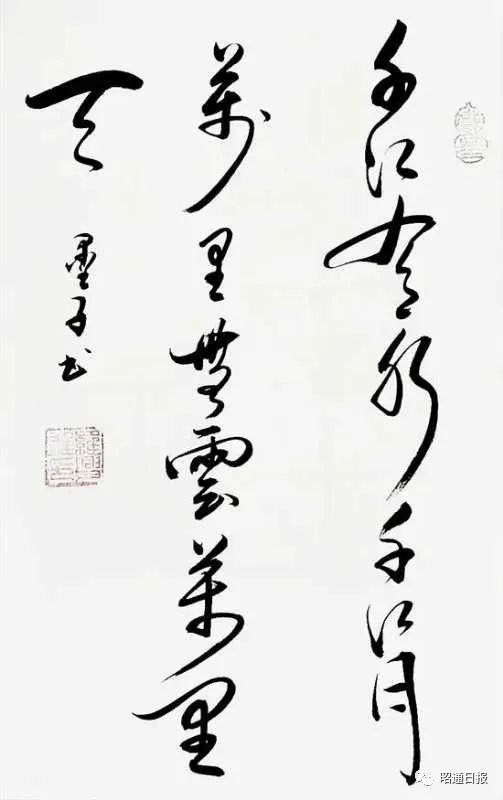 千江有水千江月
萬里無雲萬里
天
墨子书
昭通日报